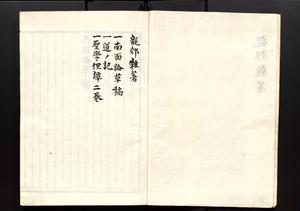 龍郊雜著
一南面論草稿
一道ノ記
一聖學俚譚二卷